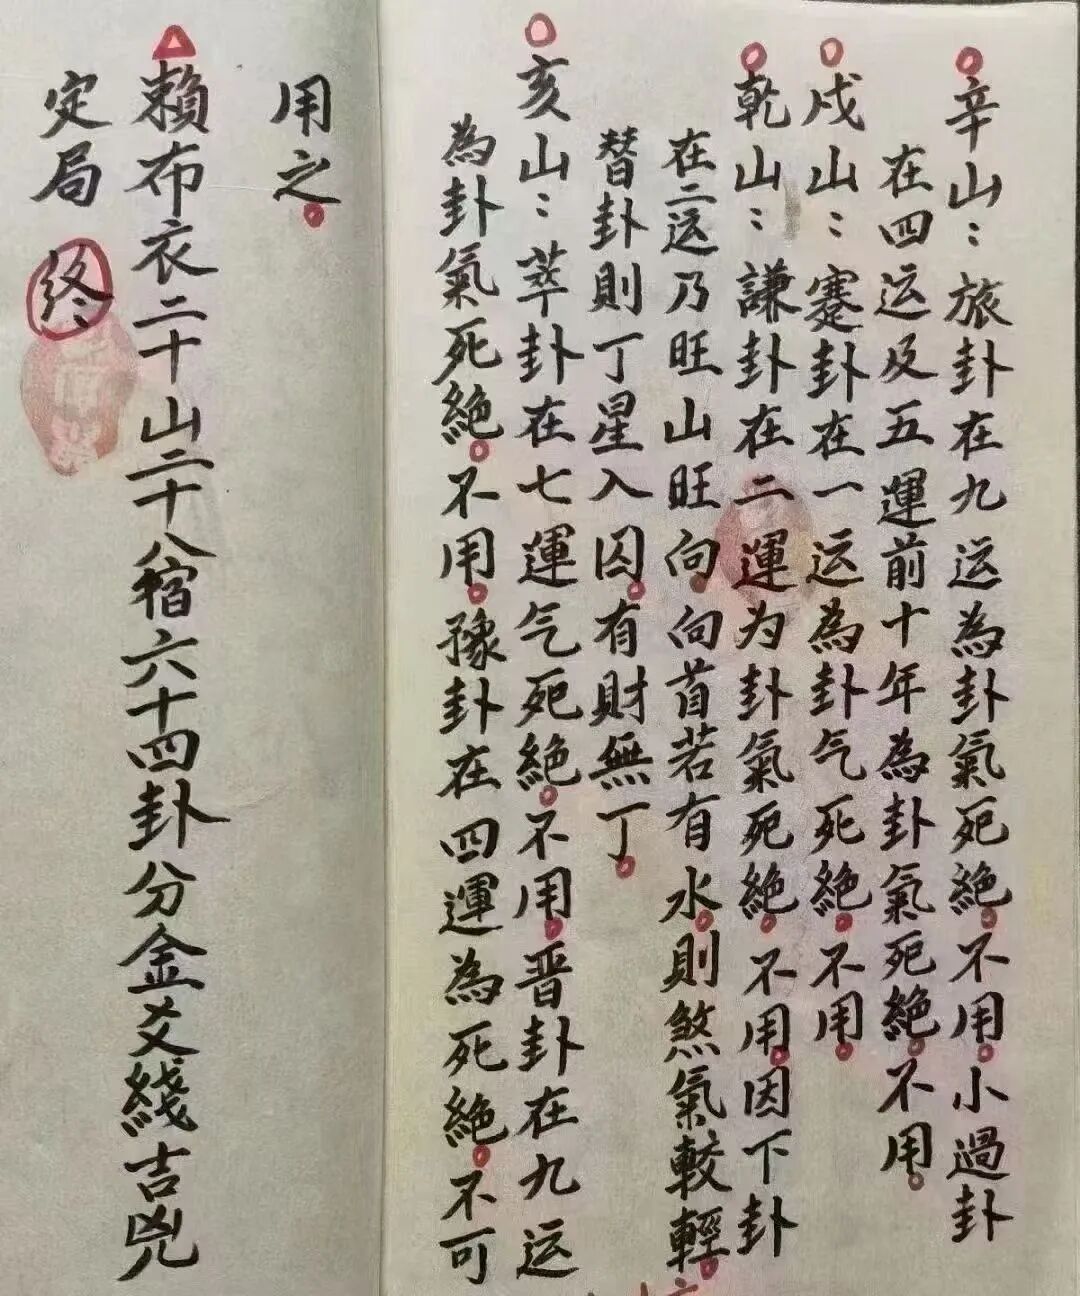 辛山：旅卦在九运為卦氣死絕。不用。小過卦
在四运及五運前十年為卦氣死絕。不用。
戌山：蹇卦在一运為卦气死絕。不用。
乾山：謙卦在二運为卦氣死絕。不用。因下卦
在二运乃旺山旺向。向首若有水。則煞氣較輕。
替卦則丁星入囚。有財無丁。
亥山：萃卦在七運气死絕。不用。晋卦在九运
為卦氣死絕。不用。豫卦在四運為死絕。不可
用之。
賴布衣二十山二十八宿六十四卦分金爻綫吉兇
定局 终